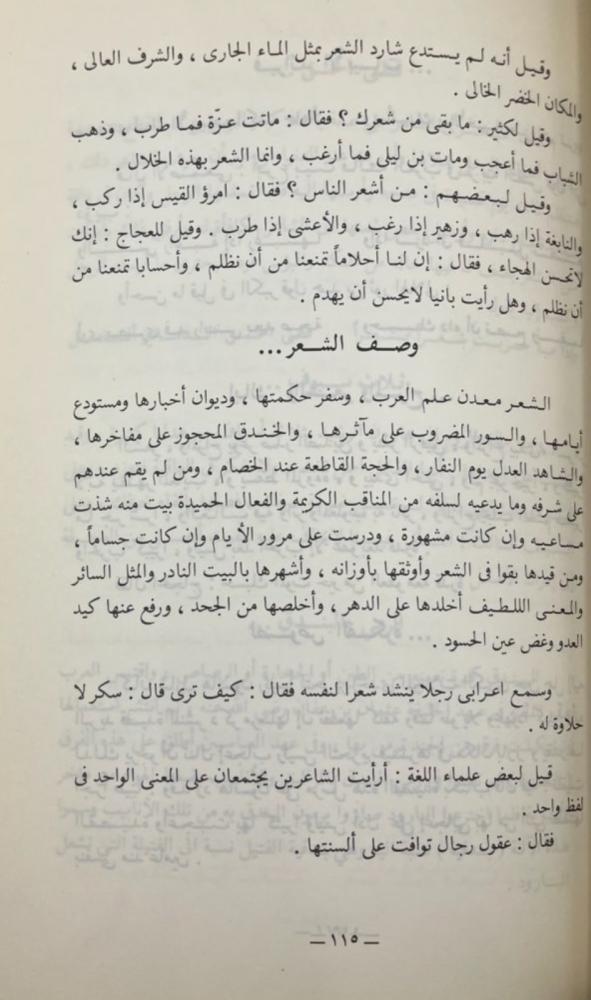 وقيل أنه لم يستدع شارد الشعر بمثل الماء الجارى ، والشرف العالى ،
والمكان الخضر الخالى .
وقيل لكثير : ما بقى من شعرك ؟ فقال : ماتت عزّة فما طرب ، وذهب
الشباب فما أعجب ومات بن ليلى فما أرغب ، وانما الشعر بهذه الخلال .
وقيل لبعضهم : من أشعر الناس ؟ فقال : امرؤ القيس إذا ركب ،
والنابغة إذا رهب ، وزهير إذا رغب ، والأعشى إذا طرب . وقيل للعجاج : إنك
لاتحسن الهجاء ، فقال : إن لنا أحلاماً تمنعنا من أن نظلم ، وأحسابا تمنعنا من
أن نظلم ، وهل رأيت بانيا لايحسن أن يهدم .
وصف الشعر ...
الشعر معدن علم العرب ، وسفر حكمتها ، وديوان أخبارها ومستودع
أيامها ، والسور المضروب على مآثرها ، والخندق المحجوز على مفاخرها ،
والشاهد العدل يوم النفار ، والحجة القاطعة عند الخصام ، ومن لم يقم عندهم
على شرفه وما يدعيه لسلفه من المناقب الكريمة والفعال الحميدة بيت منه شذت
مساعيه وإن كانت مشهورة ، ودرست على مرور الأيام وإن كانت جساماً ،
ومن قيدها بقوا فى الشعر وأوثقها بأوزانه ، وأشهرها بالبيت النادر والمثل السائر
والمعنى اللطيف أخلدها على الدهر ، وأخلصها من الجحد ، ورفع عنها كيد
العدو وغض عين الحسود .
وسمع اعرابى رجلا ينشد شعرا لنفسه فقال : كيف ترى قال : سكر لا
حلاوة له .
قيل لبعض علماء اللغة : أرأيت الشاعرين يجتمعان على المعنى الواحد فى
لفظ واحد .
فقال : عقول رجال توافت على ألسنتها .
— ١١٥ —